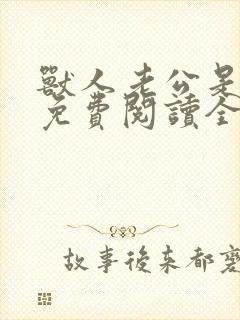 獸人老公是
免費閱讀全
故事後來都